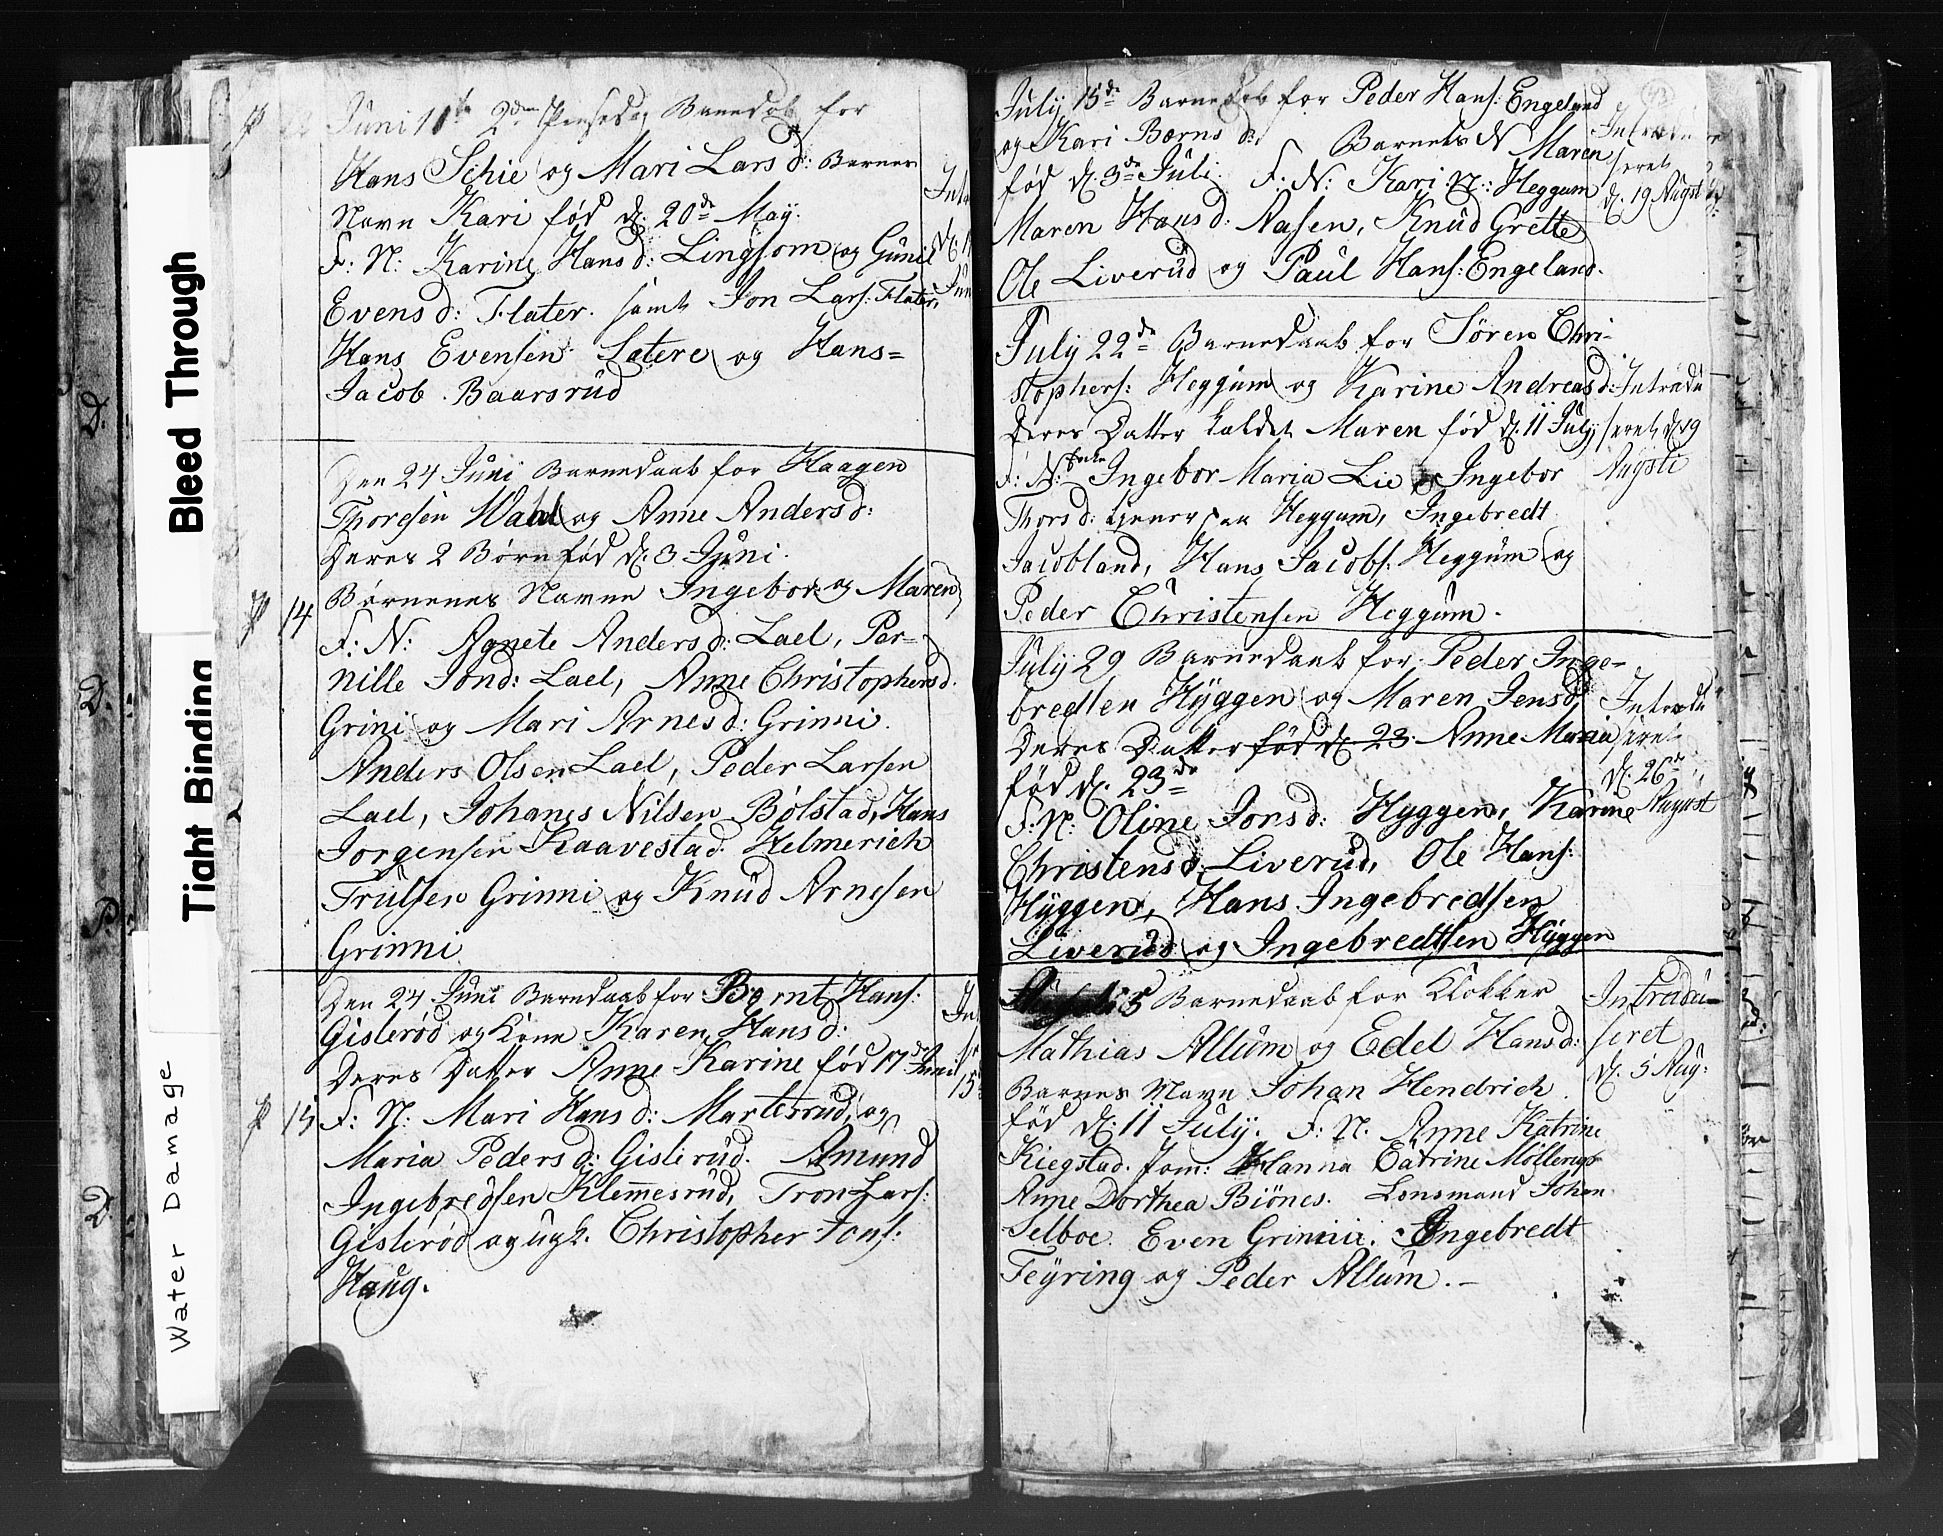 Bleed Through
Tight Binding
Water Damage
D.
D.
P.
D.
Juni 11te 2den Barnedåb for
Hans Schie og Mari Larsd: Barnes
Navn Kari fød d: 20de May.
F: N: Karine Hansd: Lingsom og Gunil
Evensd: Flater. samt Jon Lars: Flater,
Hans Evensen Lætere og Hans=
Jacob Baarsrud
Den 24 Juni Barnedaab for Haagen
Thoresen Wahl og Anne Andersd:
Deres 2 Børn fød d: 3 Juni.
14
Børnenes Navne Ingebor og Maren
F: N: Agnete Andersd: Lael, Per-
nille Jonsd: Lael, Anne Christophersd.
Grini og Mari Arnesd: Grinni.
Anders Olsen Lael, Peder Larsen
Lael, Johanes Nilsen Bølstad, Hans
Jørgensen Kaavestad. Helmerich
Trulsen Grinni og Knud Arnesen
Grinni
Den 24 Juni Barndaab for Bernt Hans:
Gislerød og Kone Karen Hansd:
Deres Datter Anne Karine fød 17de Juni
15 F: N: Mari Hansd: Martesrud, og
Maria Pedersd: Gislerud. Amund
Ingebredsen Klemmesrud, Tron Lars:
Gislerød og ugk. Christopher Jons:
Haug.
July 15de Barnedaab for Peder Hans: Engeland
og Kari Børnsd: Barnets N Maren
fød d: 3de Juli. F. N: Kari N: Heggum
Maren Hansd: Aasen, Knud Grette
Ole Liverud og Paul Hans: Engeland.
Introdu
seret
d. 19 August
July 22de Barnedaab for Søren Chri-
stophers: Heggum og Karine Andreasd:
Deres Datter kaldet Maren fød d: 11 July
F: N: Ingebor Maria Lie og Ingebor
Thorsd: tjener paa Heggum, Ingebredt
Jacobland, Hans Jacobs: Heggum og
Peder Christensen Heggum.
Introdu
seret d: 19
Augsti
July 29 Barnedaab for Peder Inge-
bredsen Hyggen og Maren Jensd
Deres Datter fød d: 23 Anne Maria
fød d: 23de
F: N: Oline Jonsd: Hyggen, Karine
Christensd: Liverud, Ole Hans:
Hyggen, Hans Ingebredsen
Liverud og Ingebredtsen Hyggen
Introdu
seret
d: 26de
August
5 Barnedaab for Klokker
Mathias Allum og Edel Hansd:
Barnes Navn Johan Hendrich
fød d: 11 July. F: N. Anne Katrine
Kiegstad. Jom: Hanna Catrine Møllerup
Anne Dorthea Biönes. Lensmand Johan
Selboe. Even Grinnii. Ingebredt
Feyring og Peder Allum.
Introdu-
seret
d: 5 Aug: